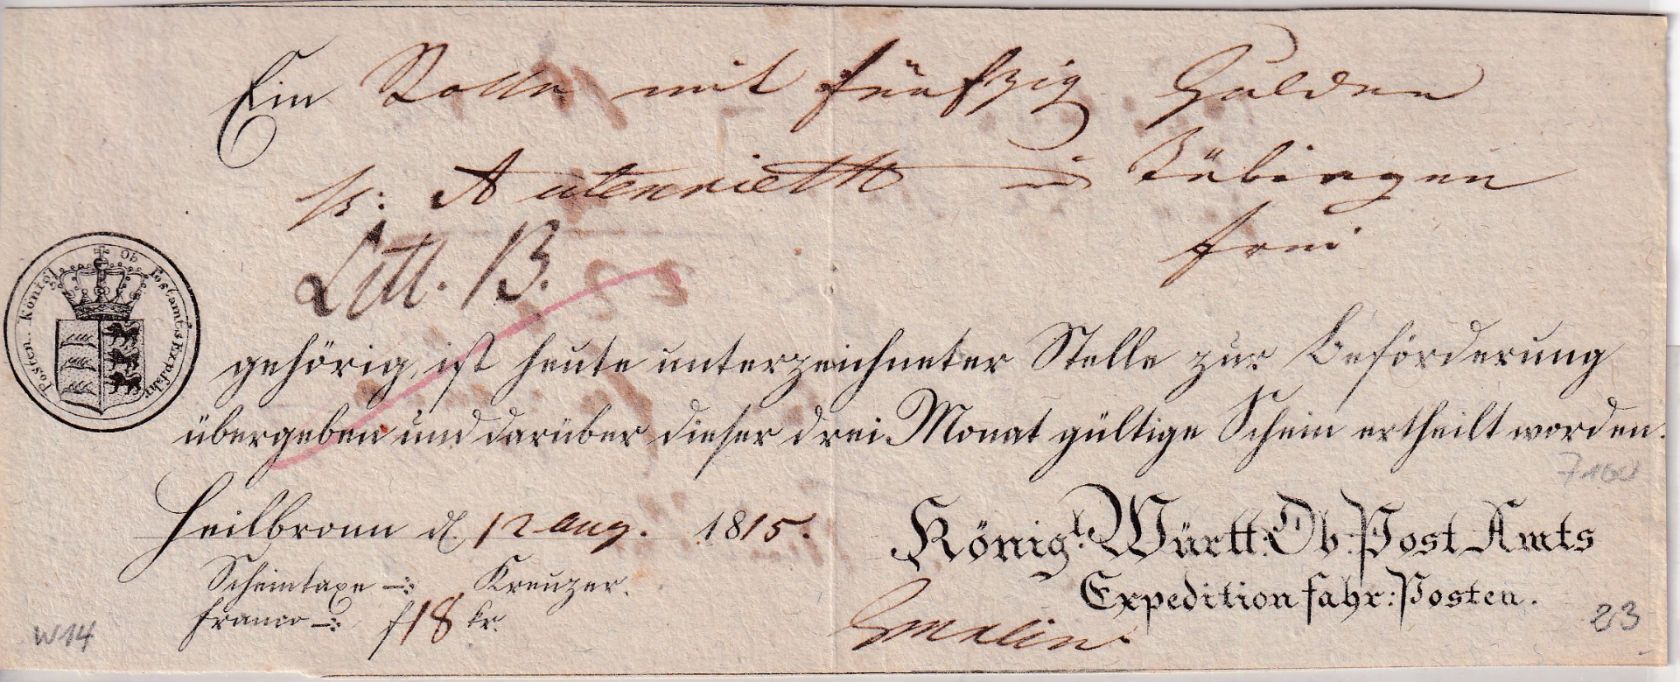 Ein Rolle mit fünfzig Gulden
p: Autenrieth in Tübingen
frei
Litt. B.
König. Ob Postamts Exp. fahr. Posten.
gehörig, ist heute unterzeichneter Stelle zur Beförderung
übergeben und darüber dieser drei Monat gültige Schein ertheilt worden.
7160
Heilbronn d. 12 Aug. 1815.
Königl. Württ: Ob: Post Amts
Scheintaxe -: Kreuzer.
Expedition fahr: Posten.
Franco -: f 18 kr.
Gmelin.
W14
23